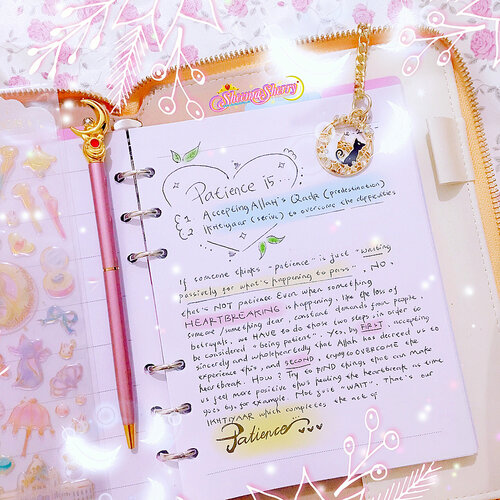 SheemaSherry
Patience is...
1 Accepting Allah's Qada (predestination)
2 Ikhtiyaar (strive) to overcome the difficulties
If someone thinks "patience" is just "waiting
passively for what's happening to pass", NO,
that's NOT patience. Even when something
HEARTBREAKING is happening, like the loss of
someone/something dear, constant demands from people,
betrayals, we HAVE to do those two steps, in order to
be considered "being patient". Yes, by FIRST, accepting
sincerely and wholeheartedly that Allah has decreed us to
experience this, and SECOND, trying to OVERCOME the
heartbreak. How? Try to FIND things that can make
us feel more positive thus healing the heartbreak as time
goes by, for example. Not just "WAIT". That's our
IKHTIYAAR which completes the act of
Patience